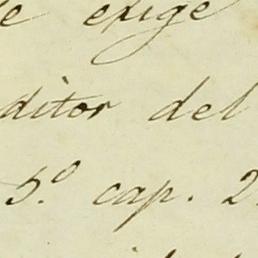 e exige
ditor del
5.º cap. 2